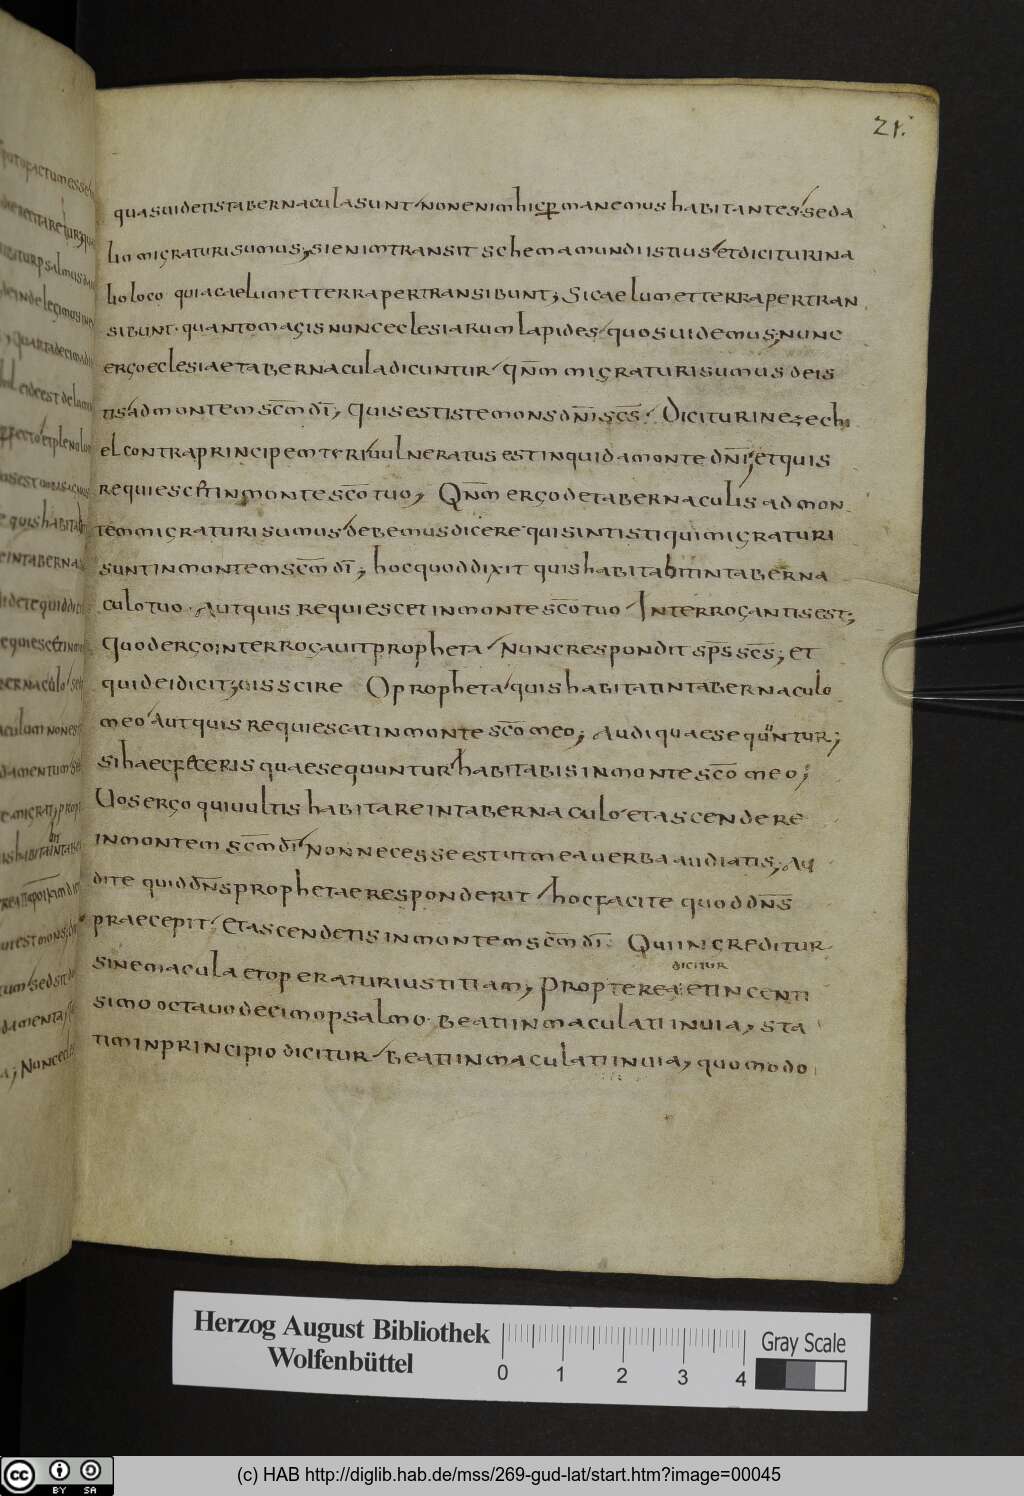 21.
quasuidetis tabernacula sunt non enim hic ꝑmanemus habitantes sed a
lio migraturi sumus; si enim transit schema mundi istius et dicitur in a
lio loco quia caelum et terra pertransibunt; Si caelum et terra pertran
sibunt· quanto magis nunc eclesiarum lapides quos uidemus; nunc
ergo eclesiae tabernacula dicuntur qn̄m migraturi sumus de is
tis ad montem sc̄m dī; quis est iste mons dn̄i sc̄s. Dicitur in ezechi
el contra principem teri uulneratus est inquid a monte dn̄i; et quis
requiescet in monte sc̄o tuo; Qn̄m ergo de tabernaculis ad mon
tem migraturi sumus debemus dicere qui sint isti qui migraturi
sunt in montem sc̄m dī; hoc quod dixit quis habitabit in taberna
culo tuo· Aut quis requiescet in monte sc̄o tuo Interrogantis est;
quod ergo interrogauit propheta nunc respondit sps̄ sc̄s; et
quid ei dicit; uis scire O propheta quis habitat in tabernaculo
meo Aut quis requiescat in monte sc̄o meo; Audi quae sequntur;
si haec feceris quae sequuntur habitabis in monte sc̄o meo;
Uos ergo qui uultis habitare in tabernaculo et ascendere
in montem sc̄m dī non necesse est ut mea uerba audiatis; Au
dite quid dn̄s prophetae responderit hoc facite quod dn̄s
praecepit et ascendetis in montem sc̄m dī. Qui increditur
dicitur
sine macula et operatur iustitiam; Propterea et in centi
simo octauo decimo psalmo· beati inmaculati in uia; sta
tim in principio dicitur beati inmaculati in uia; quomodo
Herzog August Bibliothek
Wolfenbüttel
0 1 2 3 4
Gray Scale
(c) HAB http://diglib.hab.de/mss/269-gud-lat/start.htm?image=00045
cc BY SA